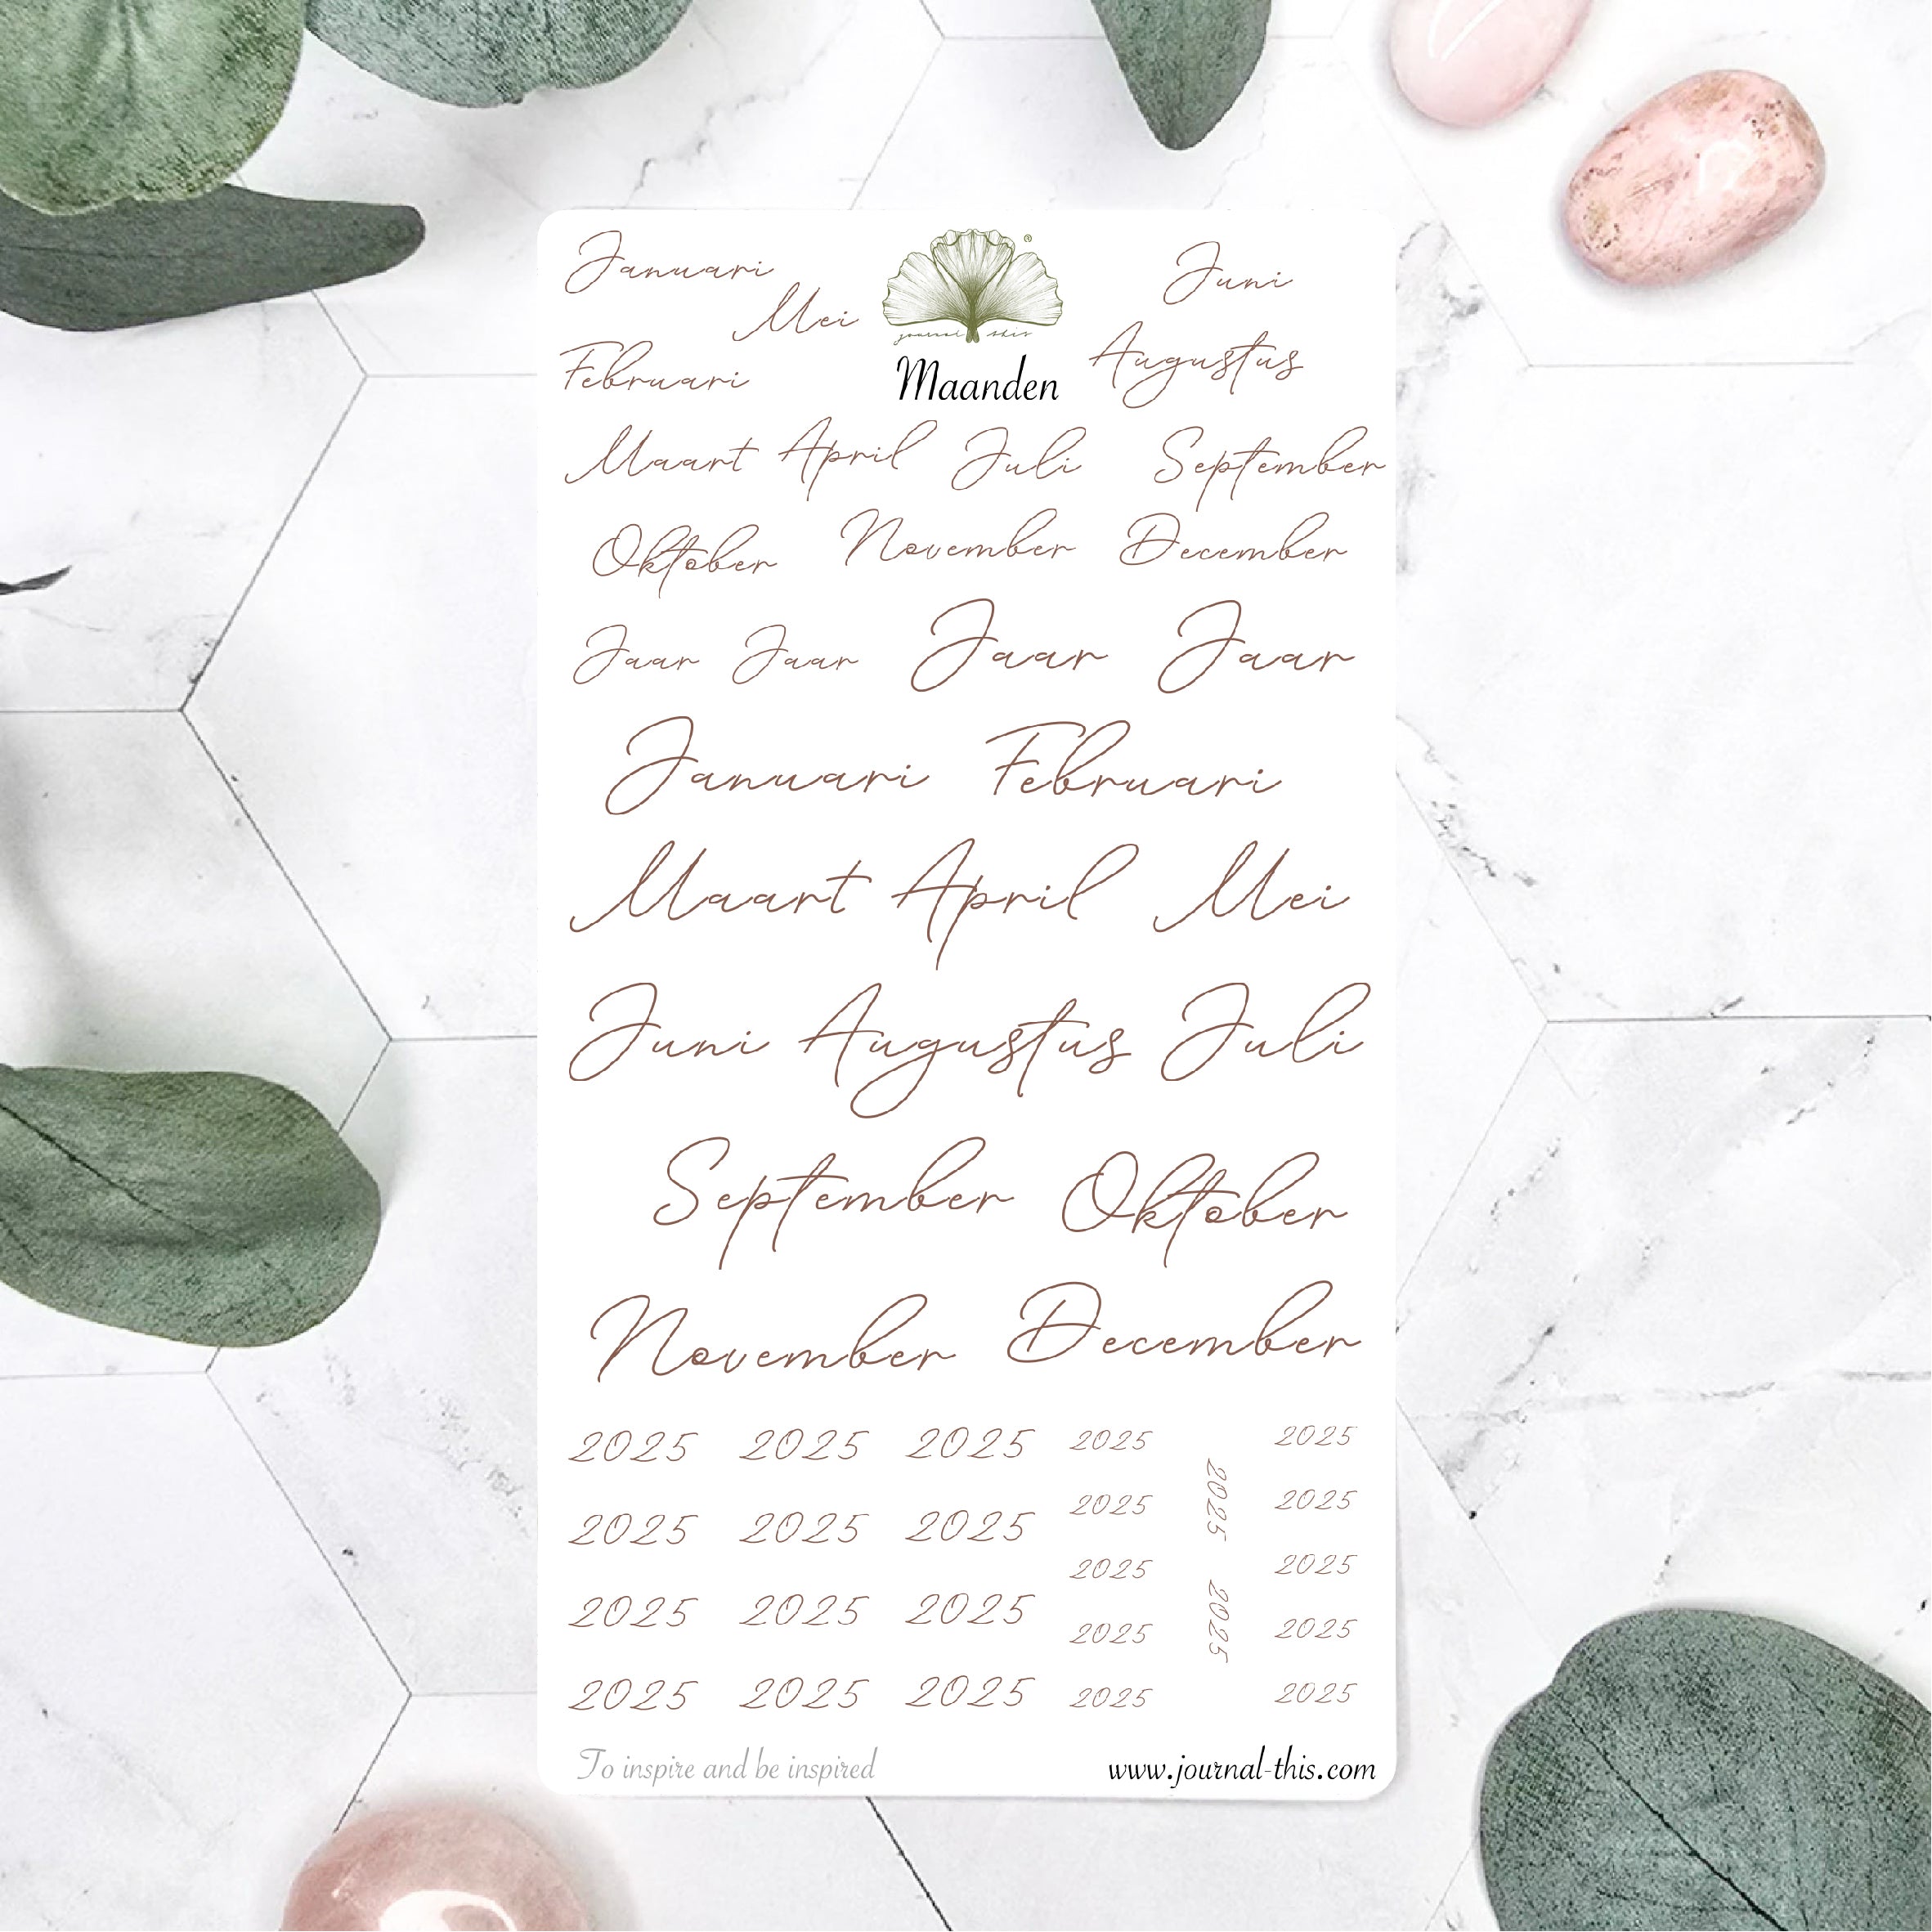 Januari
Mei
Juni
journal this
®
Februari
Maanden
Augustus
Maart April Juli September
Oktober November December
Jaar Jaar Jaar Jaar
Januari Februari
Maart April Mei
Juni Augustus Juli
September Oktober
November December
2025 2025 2025 2025 2025
2025
2025 2025 2025 2025 2025
2025 2025 2025 2025 2025
2025
2025 2025 2025 2025 2025
To inspire and be inspired
www.journal-this.com
2025 2025